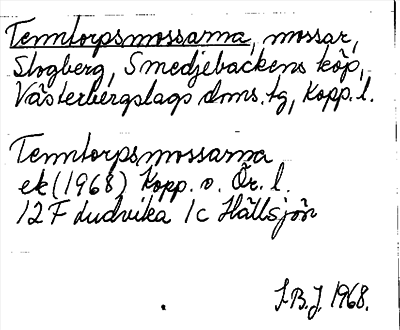 Tenntorpsmossarna, mossar,
Slogberg, Smedjebackens köp,
Västerbergslags dms. tg, Kopp. l.
Tenntorpsmossarna
ek (1968) Kopp. o. Ör. l.
12 F Ludvika 1c Hällsjön
S.B.J. 1968.